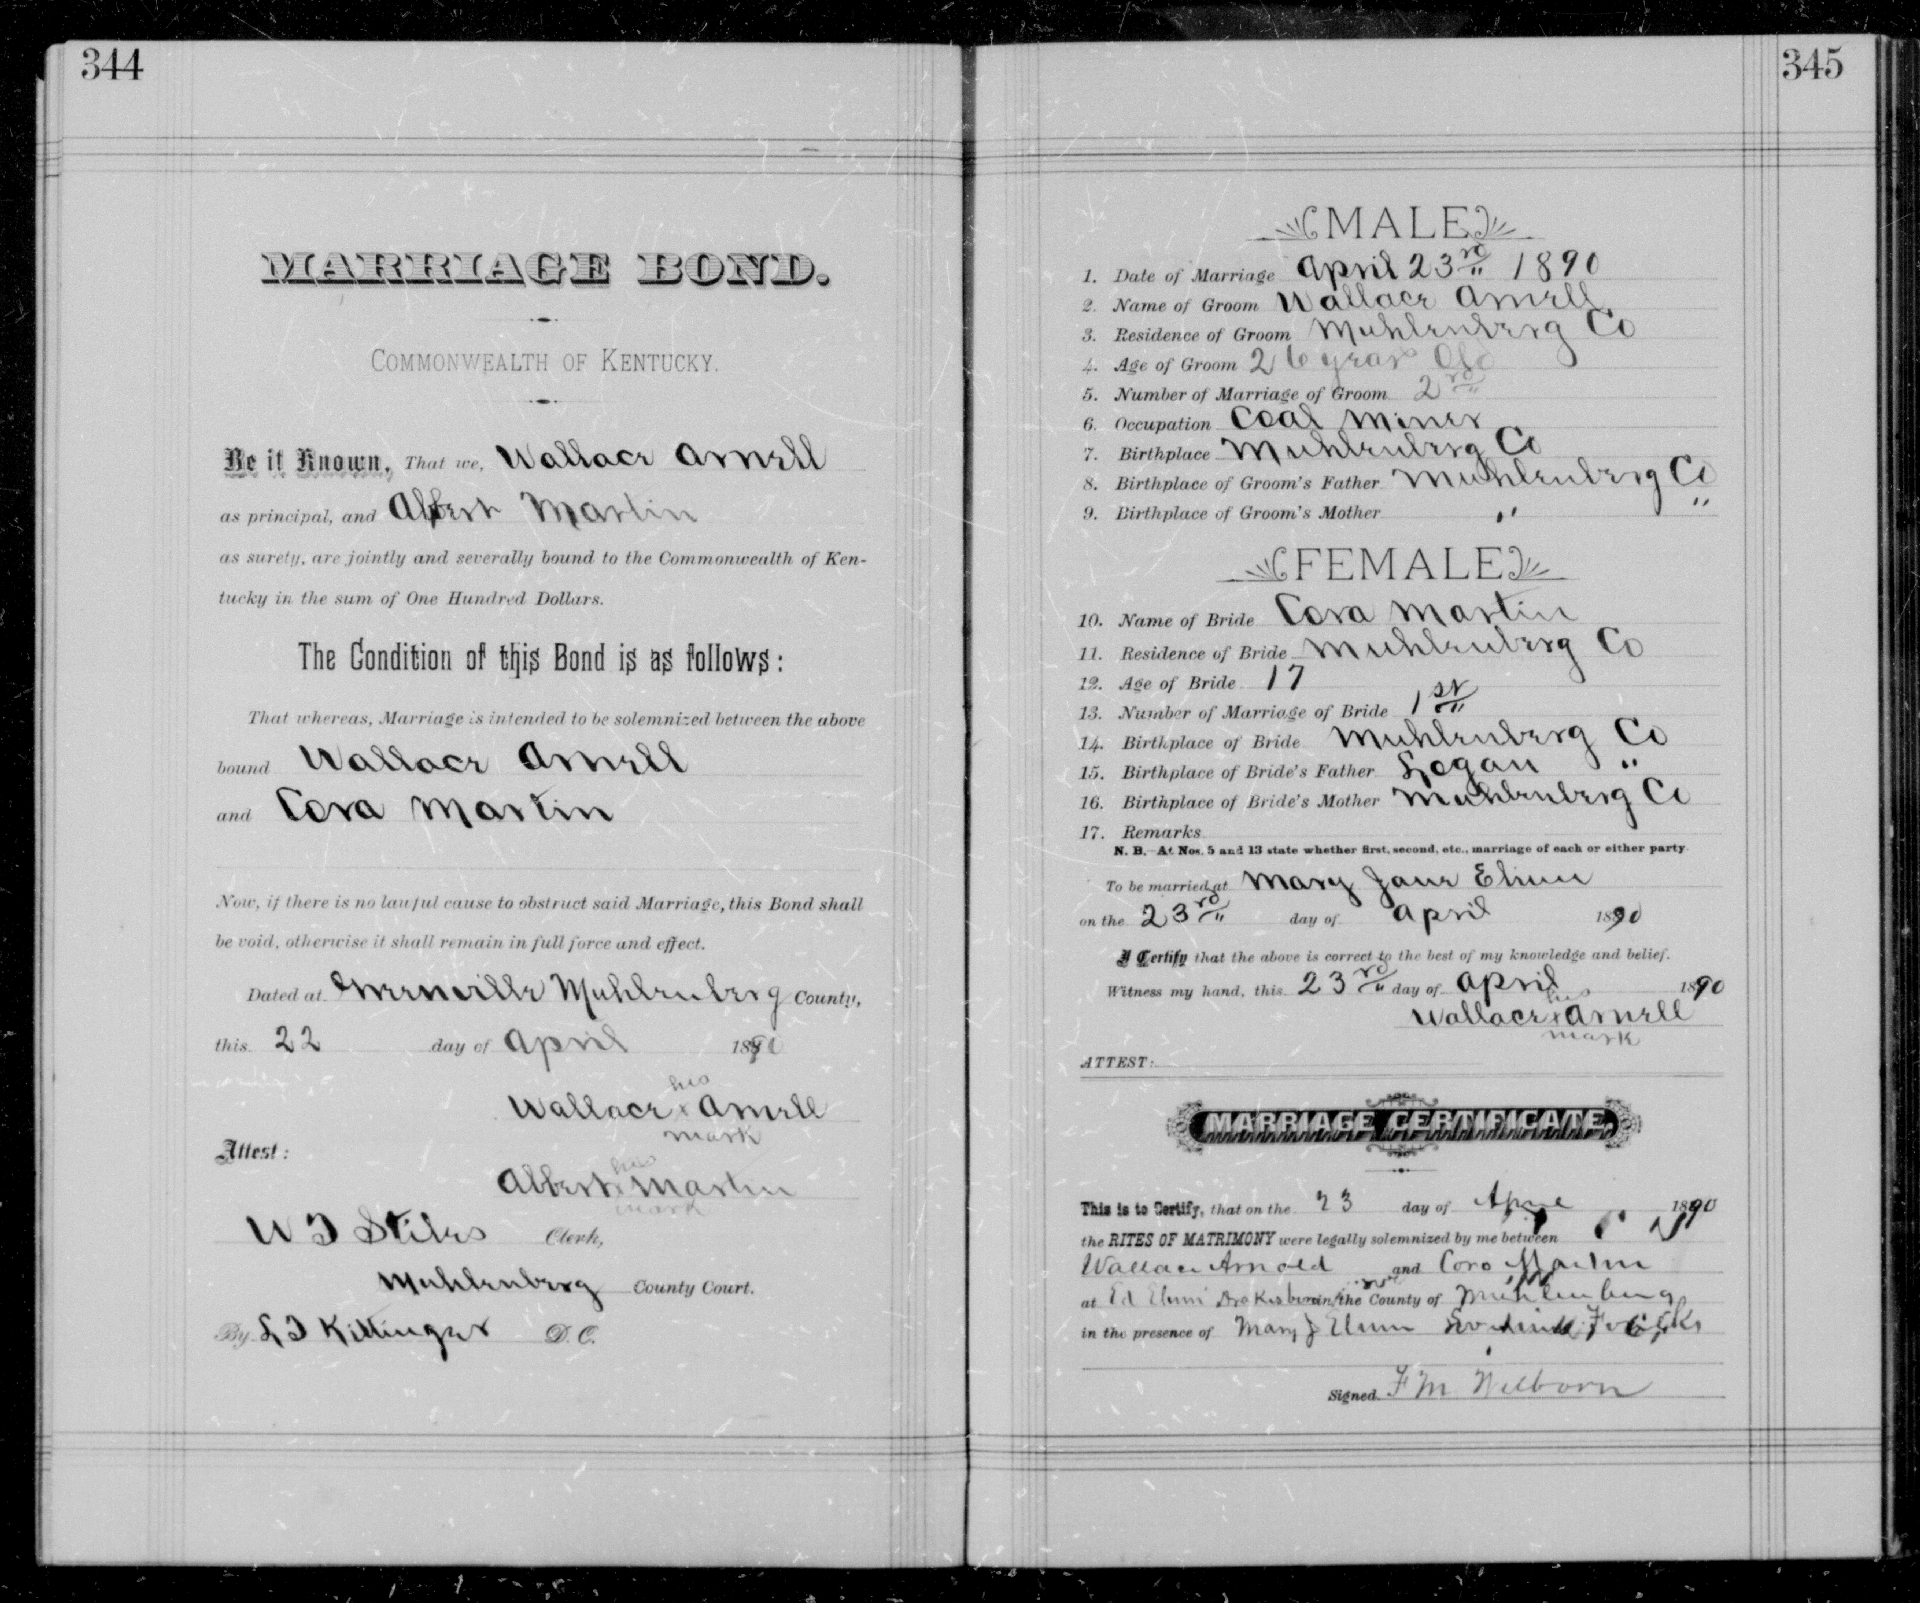 344
MARRIAGE BOND.
COMMONWEALTH OF KENTUCKY.
Be it Known, That we, Wallace Arnell
as principal, and Albert Martin
as surety, are jointly and severally bound to the Commonwealth of Ken-
tucky in the sum of One Hundred Dollars.
The Condition of this Bond is as follows:
That whereas, Marriage is intended to be solemnized between the above
bound Wallace Arnell
and Cora Martin
Now, if there is no lawful cause to obstruct said Marriage, this Bond shall
be void, otherwise it shall remain in full force and effect.
Dated at Greenville Muhlenberg County,
this 22 day of April 1890
his
Wallace x Arnell
mark
Attest:
his
Albert x Martin
mark
W T Stiles Clerk,
Muhlenberg County Court.
By L T Kittinger D. C.
345
MALE
1. Date of Marriage April 23rd 1890
2. Name of Groom Wallace Arnell
3. Residence of Groom Muhlenberg Co
4. Age of Groom 26 years Old
5. Number of Marriage of Groom 2nd
6. Occupation Coal Miner
7. Birthplace Muhlenberg Co
8. Birthplace of Groom's Father Muhlenberg Co
9. Birthplace of Groom's Mother " "
FEMALE
10. Name of Bride Cora Martin
11. Residence of Bride Muhlenberg Co
12. Age of Bride 17
13. Number of Marriage of Bride 1st
14. Birthplace of Bride Muhlenberg Co
15. Birthplace of Bride's Father Logan "
16. Birthplace of Bride's Mother Muhlenberg Co
17. Remarks
N. B.—At Nos. 5 and 13 state whether first, second, etc., marriage of each or either party.
To be married at Mary Jane Elium
on the 23rd day of April 1890
I Certify that the above is correct to the best of my knowledge and belief.
Witness my hand, this 23rd day of April 1890
his
Wallace x Arnell
mark
ATTEST:
MARRIAGE CERTIFICATE.
This is to Certify, that on the 23 day of April 1890
the RITES OF MATRIMONY were legally solemnized by me between
Wallace Arnold and Cora Martin
at Ed Elum in the County of Muhlenberg
in the presence of Mary J Elum
Signed. F M Welborn